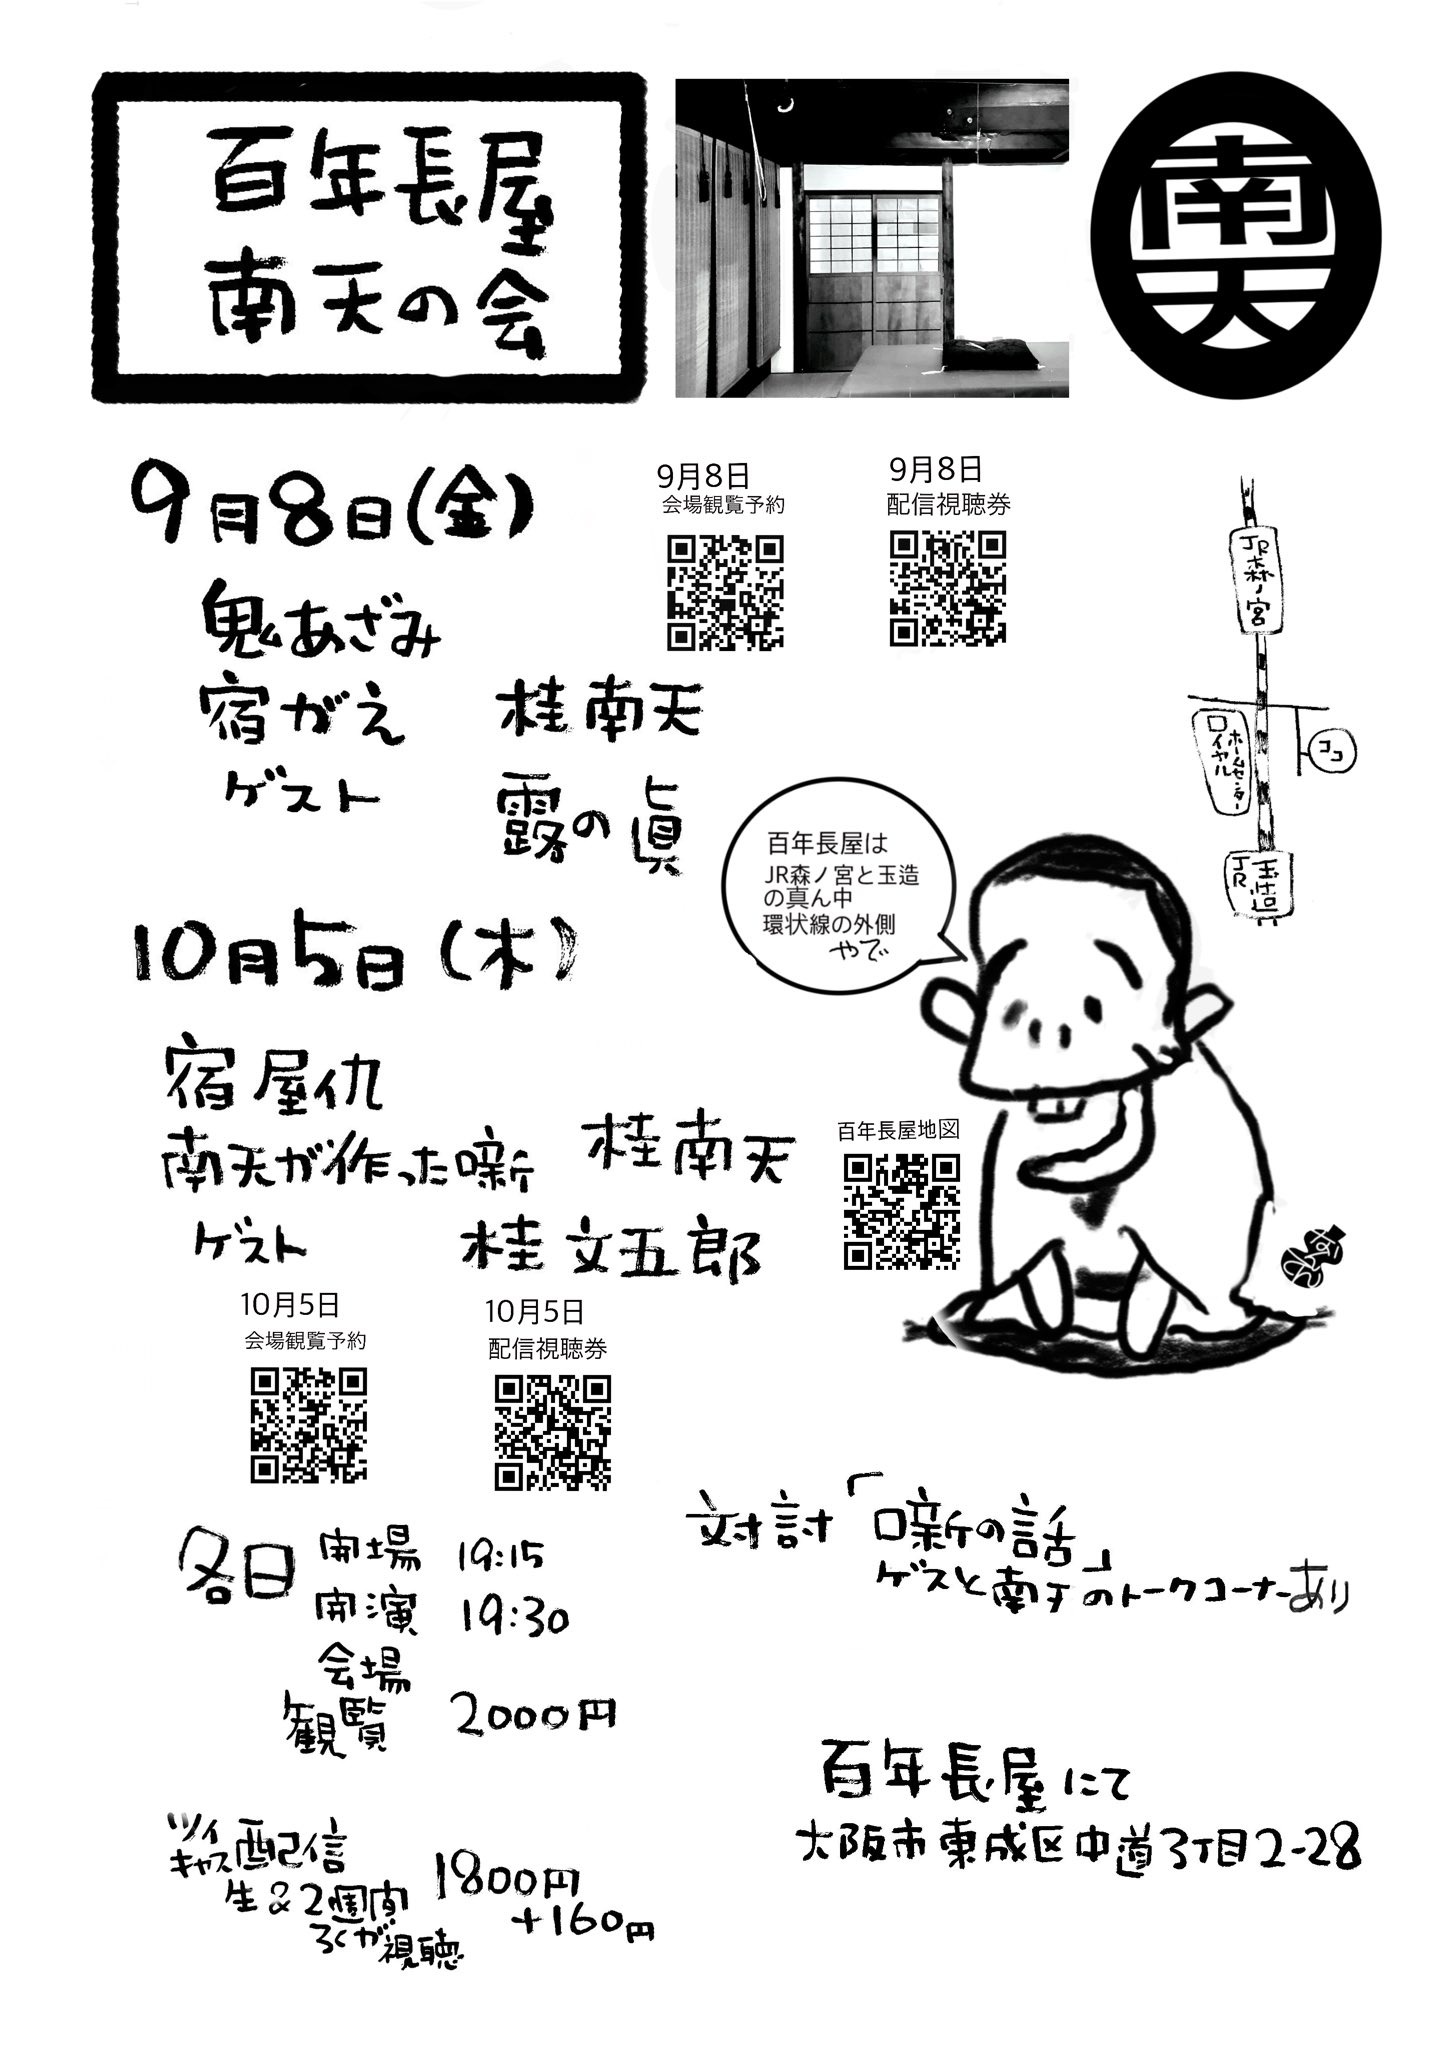 百年長屋
南天の会
南天
9月8日(金)
鬼あざみ
宿がえ 桂南天
ゲスト 露の眞
9月8日
会場観覧予約
9月8日
配信視聴券
JR森ノ宮
ロイヤル
ホームセンター
ココ
JR玉造
百年長屋は
JR森ノ宮と玉造
の真ん中
環状線の外側
やで
10月5日(木)
宿屋仇
南天が作った噺 桂南天
ゲスト 桂文五郎
百年長屋地図
10月5日
会場観覧予約
10月5日
配信視聴券
各日 開場 19:15
開演 19:30
会場
観覧 2000円
対討「噺の話」
ゲストと南天のトークコーナーあり
ツイ
キャス配信
生&2週間
ろくが視聴
1800円
+160円
百年長屋にて
大阪市東成区中道3丁目2-28